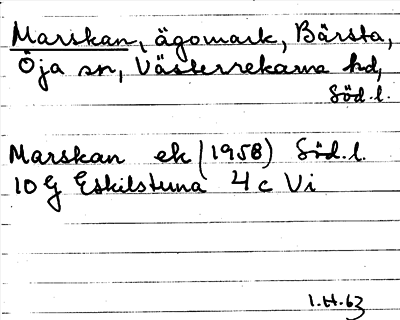 Marskan, ägomark, Bärsta,
Öja sn, Västerrekarne hd,
Söd. l.
Marskan ek (1958) Söd. l.
10 G Eskilstuna 4 c Vi
1.H.63